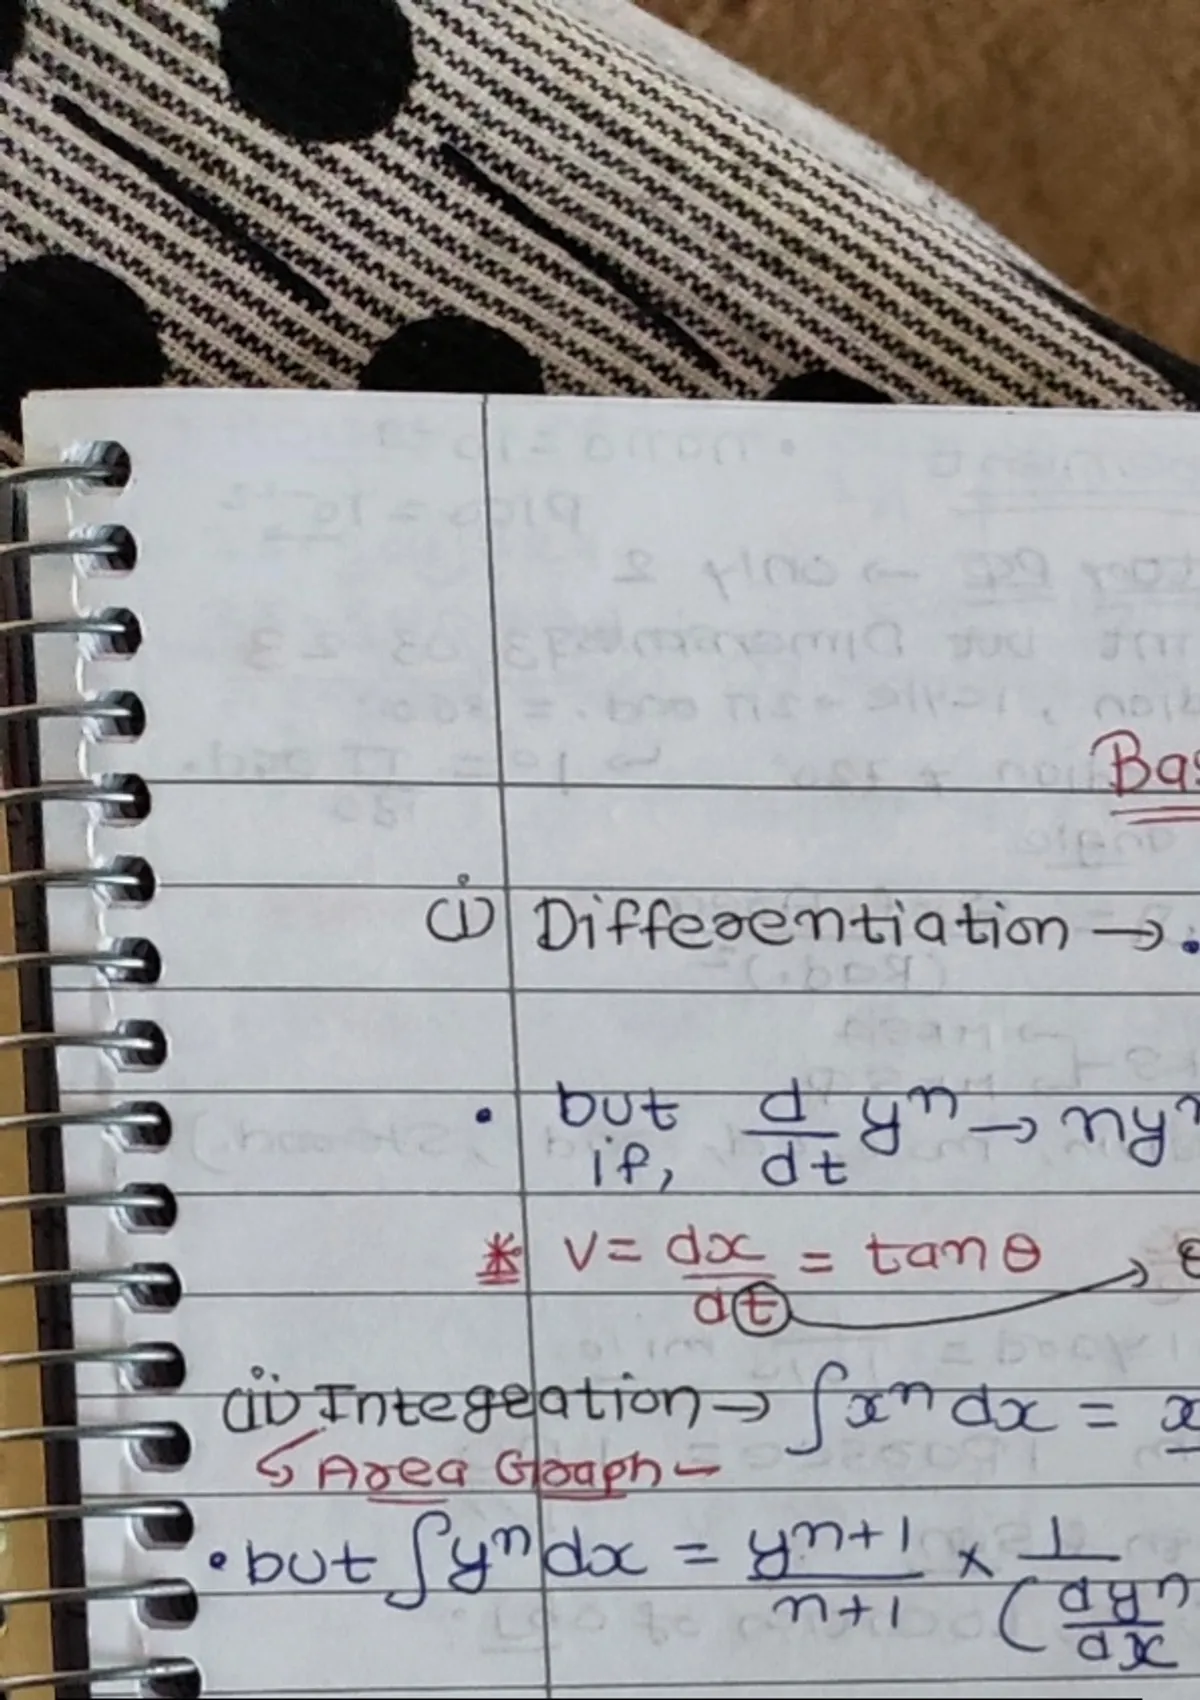 Bas
(i) Differentiation → •
• but if, d/dt yⁿ → ny
* V = dx/dt = tan θ → θ
(ii) Integration → ∫xⁿ dx = x
↳ Area Graph –
• but ∫yⁿ dx = yⁿ⁺¹/n+1 × 1/(dyⁿ/dx)